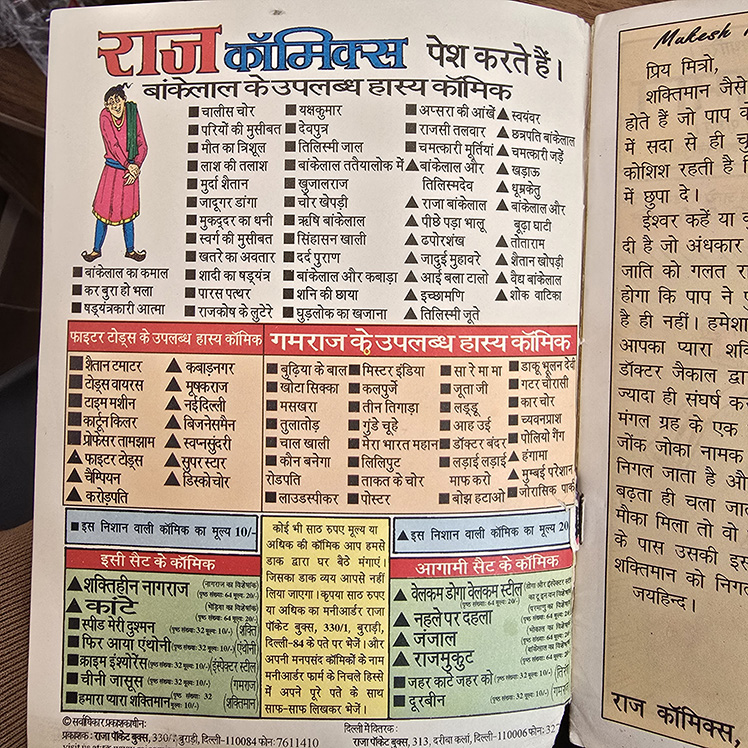 राज कॉमिक्स पेश करते हैं।
बांकेलाल के उपलब्ध हास्य कॉमिक
■ चालीस चोर
■ परियों की मुसीबत
■ मौत का त्रिशूल
■ लाश की तलाश
■ मुर्दा शैतान
■ जादूगर डांगा
■ मुकद्दर का धनी
■ स्वर्ग की मुसीबत
■ खतरे का अवतार
■ बांकेलाल का कमाल
■ शादी का षड्यंत्र
■ कर बुरा हो भला
■ पारस पत्थर
■ षड्यंत्रकारी आत्मा
■ राजकोष के लुटेरे
■ यक्षकुमार
■ देवपुत्र
■ तिलिस्मी जाल
■ बांकेलाल ततैयालोक में
■ खुजालराज
■ चोर खेपड़ी
■ ऋषि बांकेलाल
■ सिंहासन खाली
■ दर्द पुराण
■ बांकेलाल और कबाड़ा
■ शनि की छाया
■ घुड़लोक का खजाना
■ अप्सरा की आंखें
■ राजसी तलवार
■ चमत्कारी मूर्तियां
▲ बांकेलाल और
तिलिस्मदेव
▲ राजा बांकेलाल
▲ पीछे पड़ा भालू
▲ ढपोरशंख
▲ जादुई मुहावरे
▲ आई बला टालो
▲ इच्छामणि
▲ तिलिस्मी जूते
▲ स्वयंवर
▲ छत्रपति बांकेलाल
▲ चमत्कारी जड़ें
▲ खड़ाऊ
▲ धूम्रकेतु
▲ बांकेलाल और
बूढ़ा घाटी
▲ तोताराम
▲ शैतान खोपड़ी
▲ वैद्य बांकेलाल
▲ शोक वाटिका
फाइटर टोड्स के उपलब्ध हास्य कॉमिक
■ शैतान टमाटर
■ टोड्स वायरस
■ टाइम मशीन
■ कार्टून किलर
■ प्रोफेसर तामझाम
▲ फाइटर टोड्स
▲ चैम्पियन
▲ करोड़पति
▲ कबाड़नगर
▲ मूषकराज
▲ नई दिल्ली
▲ बिजनेसमैन
▲ स्वप्नसुंदरी
▲ सुपर स्टार
▲ डिस्को चोर
गमराज के उपलब्ध हास्य कॉमिक
■ बुढ़िया के बाल
■ खोटा सिक्का
■ मसखरा
■ तुलातोड़
■ चाल खाली
■ कौन बनेगा
रोडपति
■ लाउडस्पीकर
■ मिस्टर इंडिया
■ कलपुर्जे
■ तीन तिगाड़ा
■ गुंडे चूहे
■ मेरा भारत महान
■ लिलिपुट
■ ताकत के चोर
■ पोस्टर
■ सा रे मा मा
■ जूता जी
■ लड्डू
■ आह उई
■ डॉक्टर बंदर
■ लड़ाई लड़ाई
माफ करो
■ बोझ हटाओ
■ डाकू भूलन देवी
■ गटर चौरासी
■ कार चोर
■ च्यवनप्राश
■ पोलियो गैंग
▲ हंगामा
▲ मुम्बई परेशान
■ जोरासिक पार्क
■ इस निशान वाली कॉमिक का मूल्य 10/-
इसी सैट के कॉमिक
▲ शक्तिहीन नागराज (नागराज का विशेषांक) (पृष्ठ संख्या: 64 मूल्य: 20/-)
▲ कांटे (भेड़िया का विशेषांक) (पृष्ठ संख्या: 64 मूल्य: 20/-)
■ स्पीड मेरी दुश्मन (पृष्ठ संख्या: 32 मूल्य: 10/-) (शक्ति)
■ फिर आया एंथोनी (पृष्ठ संख्या: 32 मूल्य: 10/-) (एंथोनी)
■ क्राइम इंश्योरेंस (पृष्ठ संख्या: 32 मूल्य: 10/-) (इंस्पेक्टर स्टील)
■ चीनी जासूस (पृष्ठ संख्या: 32 मूल्य: 10/-) (गमराज)
■ हमारा प्यारा शक्तिमान (पृष्ठ संख्या: 32 मूल्य: 10/-) (शक्तिमान)
कोई भी साठ रुपए मूल्य या
अधिक की कॉमिक आप हमसे
डाक द्वारा घर बैठे मंगाएं।
जिसका डाक व्यय आपसे नहीं
लिया जाएगा। कृपया साठ रुपए
या अधिक का मनीआर्डर राजा
पॉकेट बुक्स, 330/1, बुराड़ी,
दिल्ली-84 के पते पर भेजें। और
अपनी मनपसंद कॉमिकों के नाम
मनीआर्डर फार्म के निचले हिस्से
में अपने पूरे पते के साथ
साफ-साफ लिखकर भेजें।
▲ इस निशान वाली कॉमिक का मूल्य 20
आगामी सैट के कॉमिक
▲ वेलकम डोगा वेलकम स्टील
▲ नहले पर दहला
▲ जंजाल
▲ राजमुकुट
■ जहर काटे जहर को
■ दूरबीन
© सर्वाधिकार प्रकाशकाधीन:
प्रकाशक: राजा पॉकेट बुक्स, 330/1 बुराड़ी, दिल्ली-110084 फोन: 7611410
दिल्ली में वितरक:
राजा पॉकेट बुक्स, 313, दरीबा कलां, दिल्ली-110006 फोन: 32
Mukesh
प्रिय मित्रो,
शक्तिमान जैसे
होते हैं जो पाप के
में सदा से ही
कोशिश रहती है
में छुपा दे।
ईश्वर कहें या
दी है जो अंधकार
जाति को गलत
होगा कि पाप ने
है ही नहीं। हमेशा
आपका प्यारा
डॉक्टर जैकाल द्वा
ज्यादा ही संघर्ष
मंगल ग्रह के एक
जोंक जोका नामक
निगल जाता है औ
बढ़ता ही चला जा
मौका मिला तो वो
के पास उसकी इस
शक्तिमान को निग
जयहिन्द।
राज कॉमिक्स,